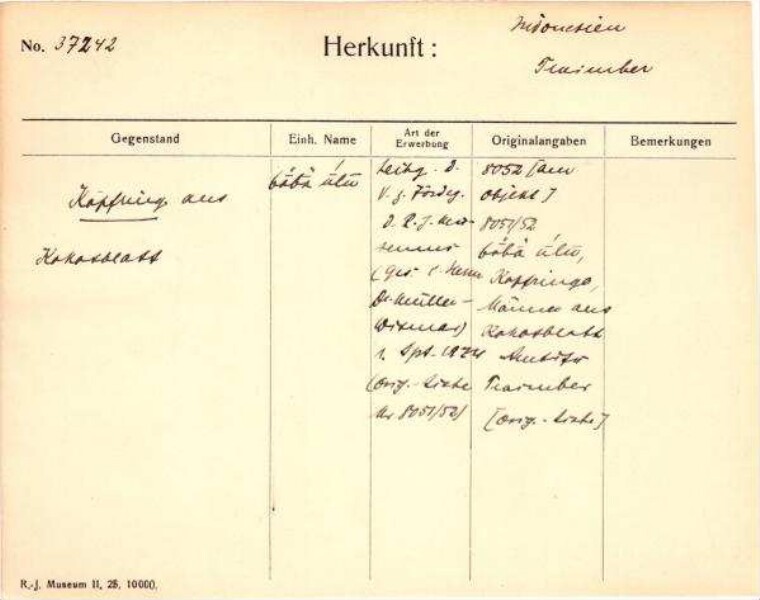 No. 37242
Herkunft:
Indonesien
Gegenstand
Einh. Name
Art der Erwerbung
Originalangaben
Bemerkungen
Kopfringe aus
Kokosblatt
bôbâ úlu
Leihg. d.
V. z. Förderg.
d. R. J. Mu-
seums
(Ges. v. Herrn
Dr. Müller-
Wismar)
1. Spt.
(Orig.-Liste
Nr 8051/52)
8052 [am
Objekt]
8051/52
bôbâ úlu,
Kopfringe,
Männer aus
Kokosblatt
[Orig.-Liste]
R.-J. Museum II, 25, 10000.